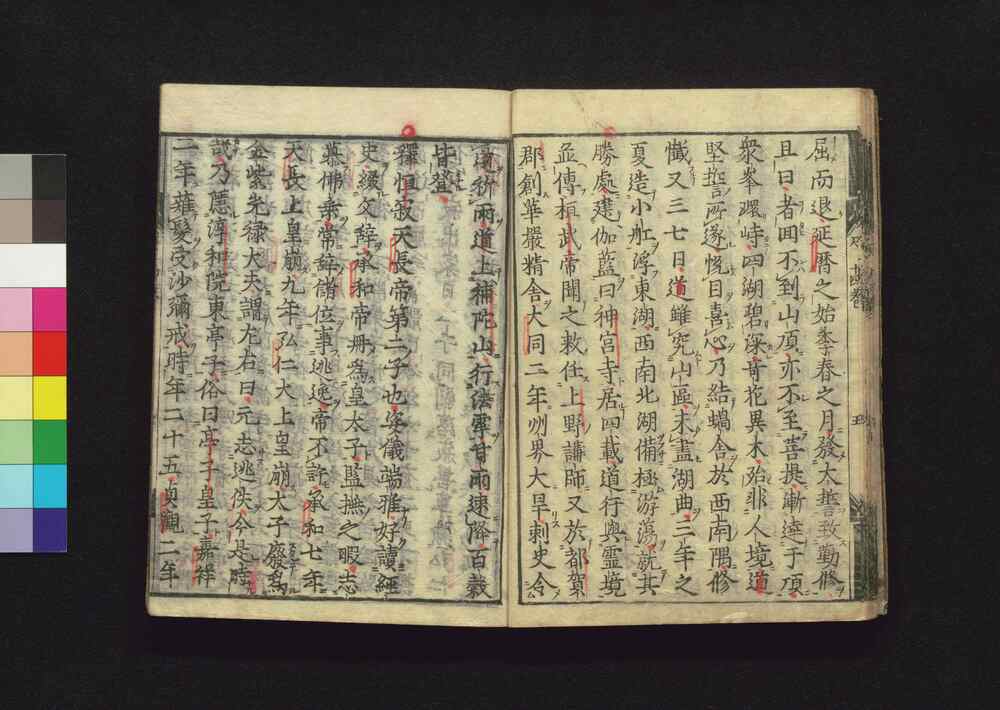 屈而退延暦之始季春之月發大誓致勤修
且曰若四不到山頂亦不至菩提漸達于項
衆峯環峙四湖碧深奇花異木殆非人境道
堅誓所遂悅目喜心乃結蝸舍於西南隅修
懺又三七日道雖究山區未盡湖曲三年之
夏造小舡浮東湖西南北湖備極游蕩就其
勝處建伽藍曰神宮寺居四載道行與靈境
並傳桓武帝聞之敕任上野講師又於都賀
郡創華嚴精舍大同二年州界大旱刺史令
道祈雨道上補陀山行法霈甘雨速降百穀
皆登
釋恒寂天長帝第二子也姿儀端雅好讀經
史綴文辭承和帝冊為皇太子監撫之暇志
慕佛乘常辭儲位事逃遁帝不許承和七年
天長上皇崩九年弘仁大上皇崩太子廢為
金紫光祿大夫謂左右曰元志逃佚今是時
哉乃隱淳和院東亭子俗曰亭子皇子嘉祥
二年薙髮受沙彌戒時年二十五貞觀二年